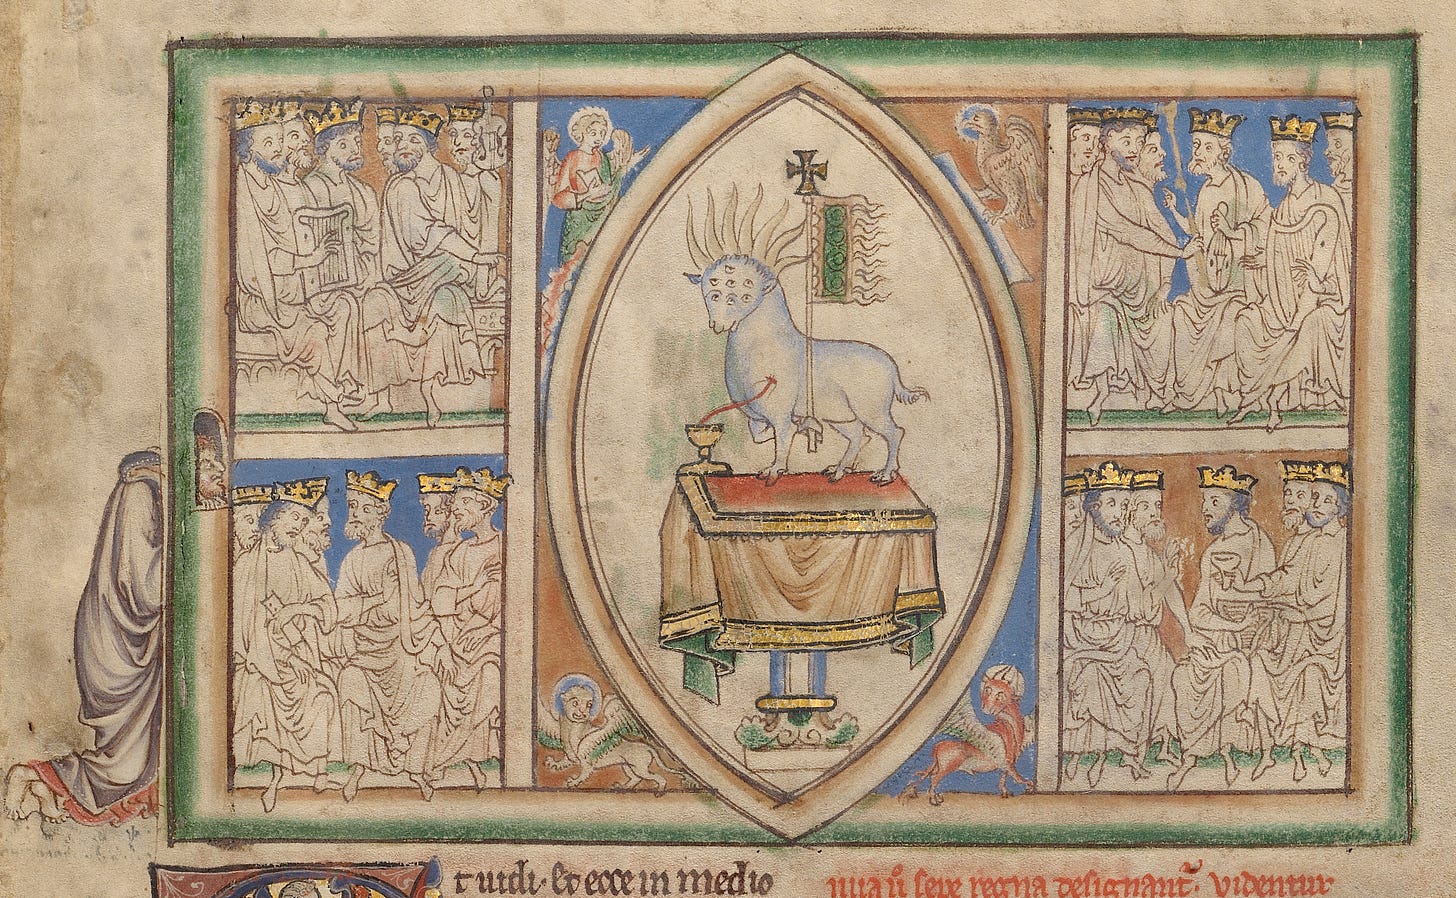 t uidi · Et ecce in medio
uia ũ sepe regna designant᷑ · videntur